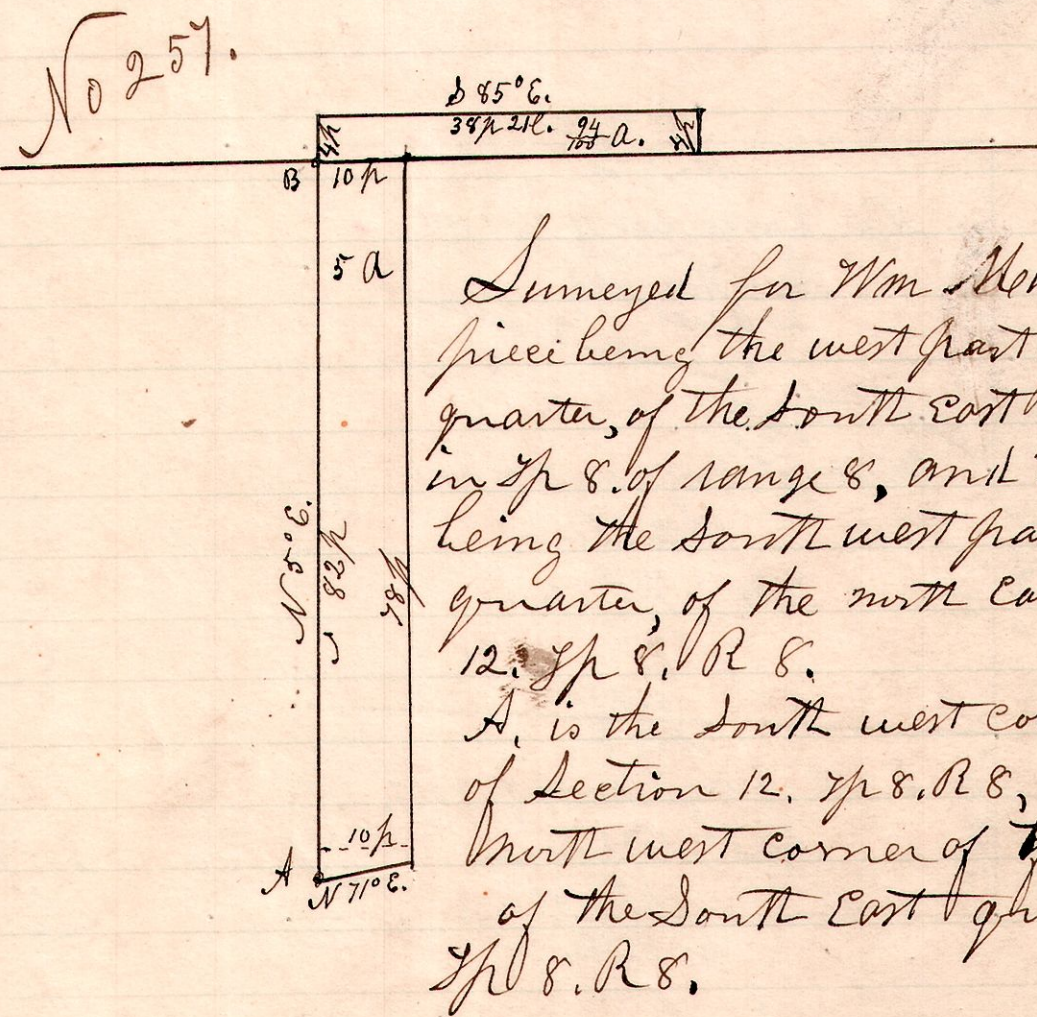 No 257.
S 85° E.
4p 38p 21l. 94/100 a. 4p
B 10 p
5 a
N 5° E.
82p
78p
10p
A
N 71° E.
Surveyed for Wm
piece being the west part
quarter, of the South East
in Tp 8. of range 8, and
being the South west pa
quarter, of the north Ea
12. Tp 8. R 8.
A, is the South west co
of Section 12. Tp 8. R 8,
north west corner of
of the South East qu
Tp 8. R 8.